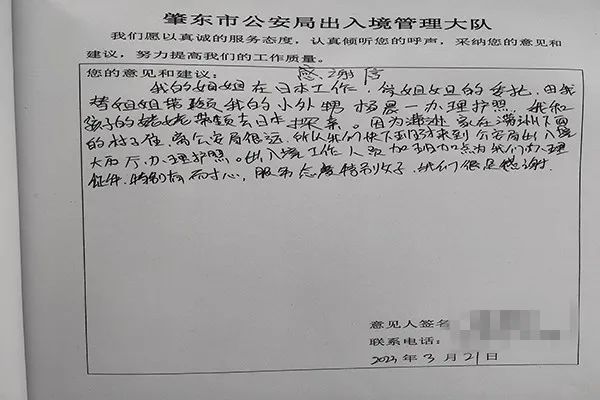 肇东市公安局出入境管理大队
我们愿以真诚的服务态度，认真倾听您的呼声，采纳您的意见和
建议，努力提高我们的工作质量。
您的意见和建议： 感谢信
我的姐姐在日本工作，受姐姐的委托，由我
替姐姐带领我的小外甥杨晨一办理护照，我和
孩子的姥姥带领去日本探亲。因为 家在满沟下面
的村子住，离公安局很远，所以我们快下班才来到公安局出入境
大厅办理护照。出入境工作人员加班加点为我们办理
证件，特别有耐心，服务态度特别好，我们很是感谢。
意见人签名
联系电话：
2023年3月21日